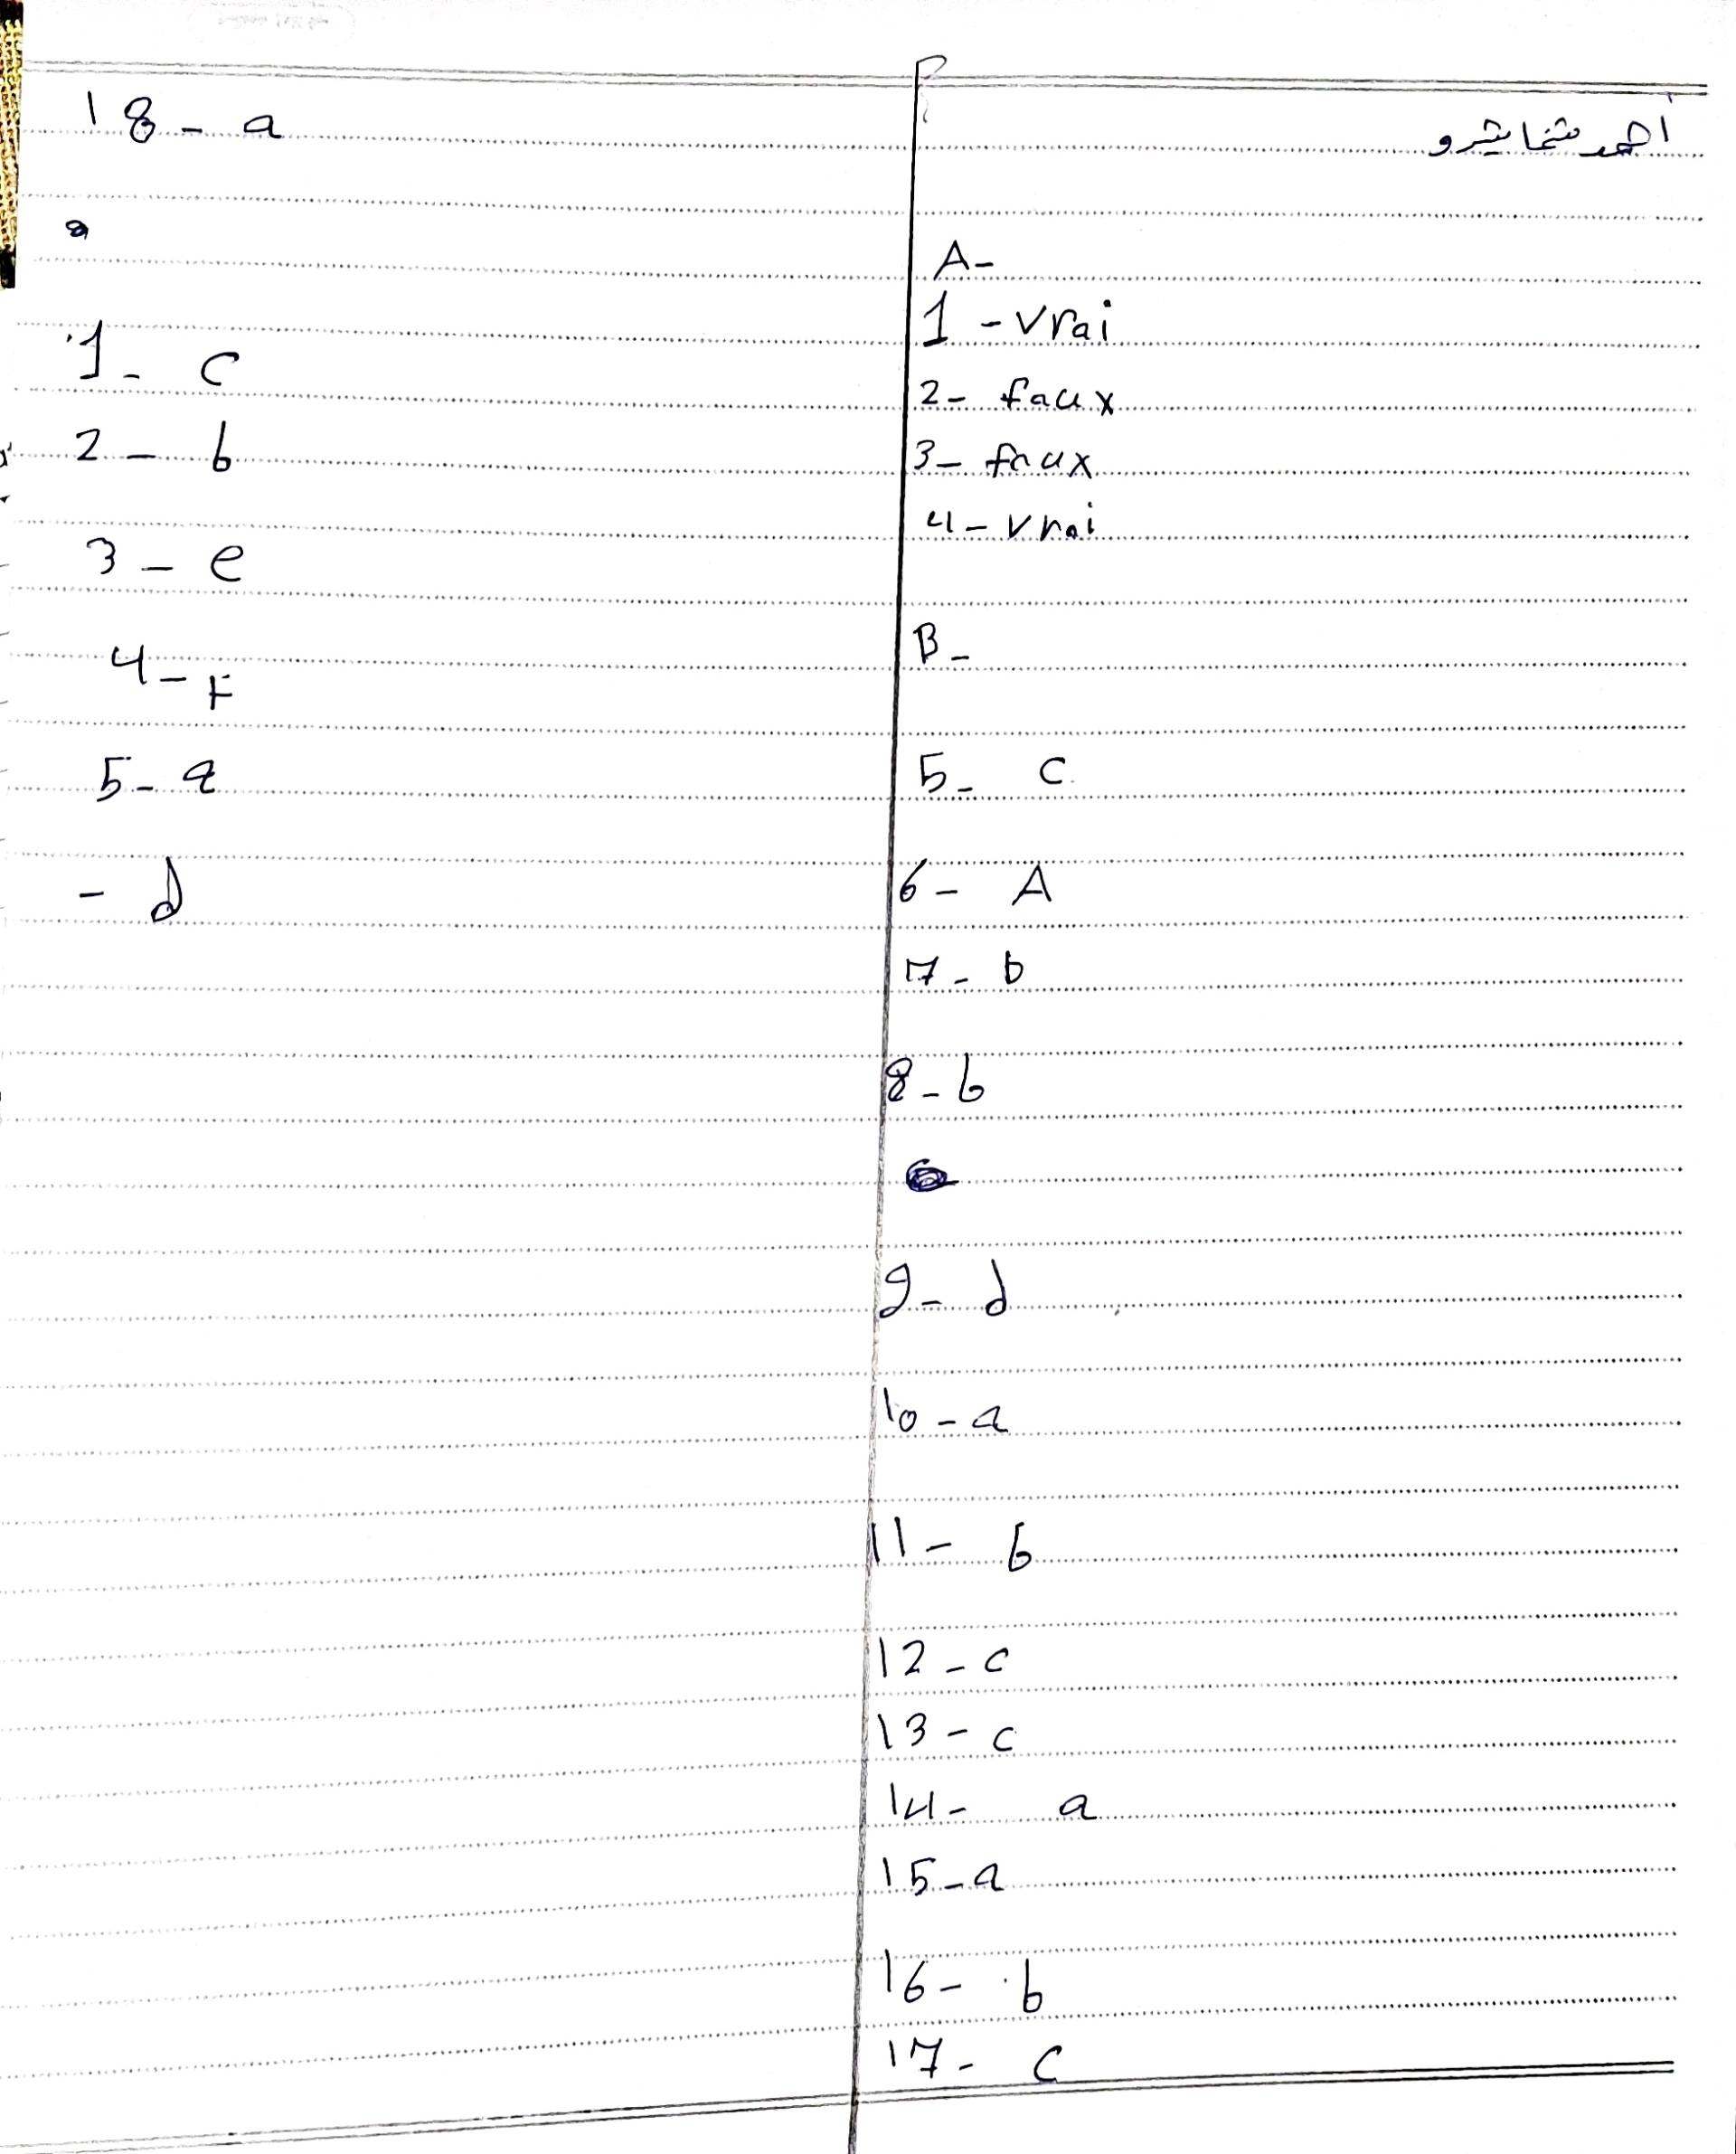 أحمد
A-
1 - vrai
2 - faux
3 - faux
4 - vrai
B -
5 - c
6 - A
7 - b
8 - b
9 - d
10 - a
11 - b
12 - c
13 - c
14 - a
15 - a
16 - b
17 - c
18 - a
1 - c
2 - b
3 - e
4 - F
5 - a
- d